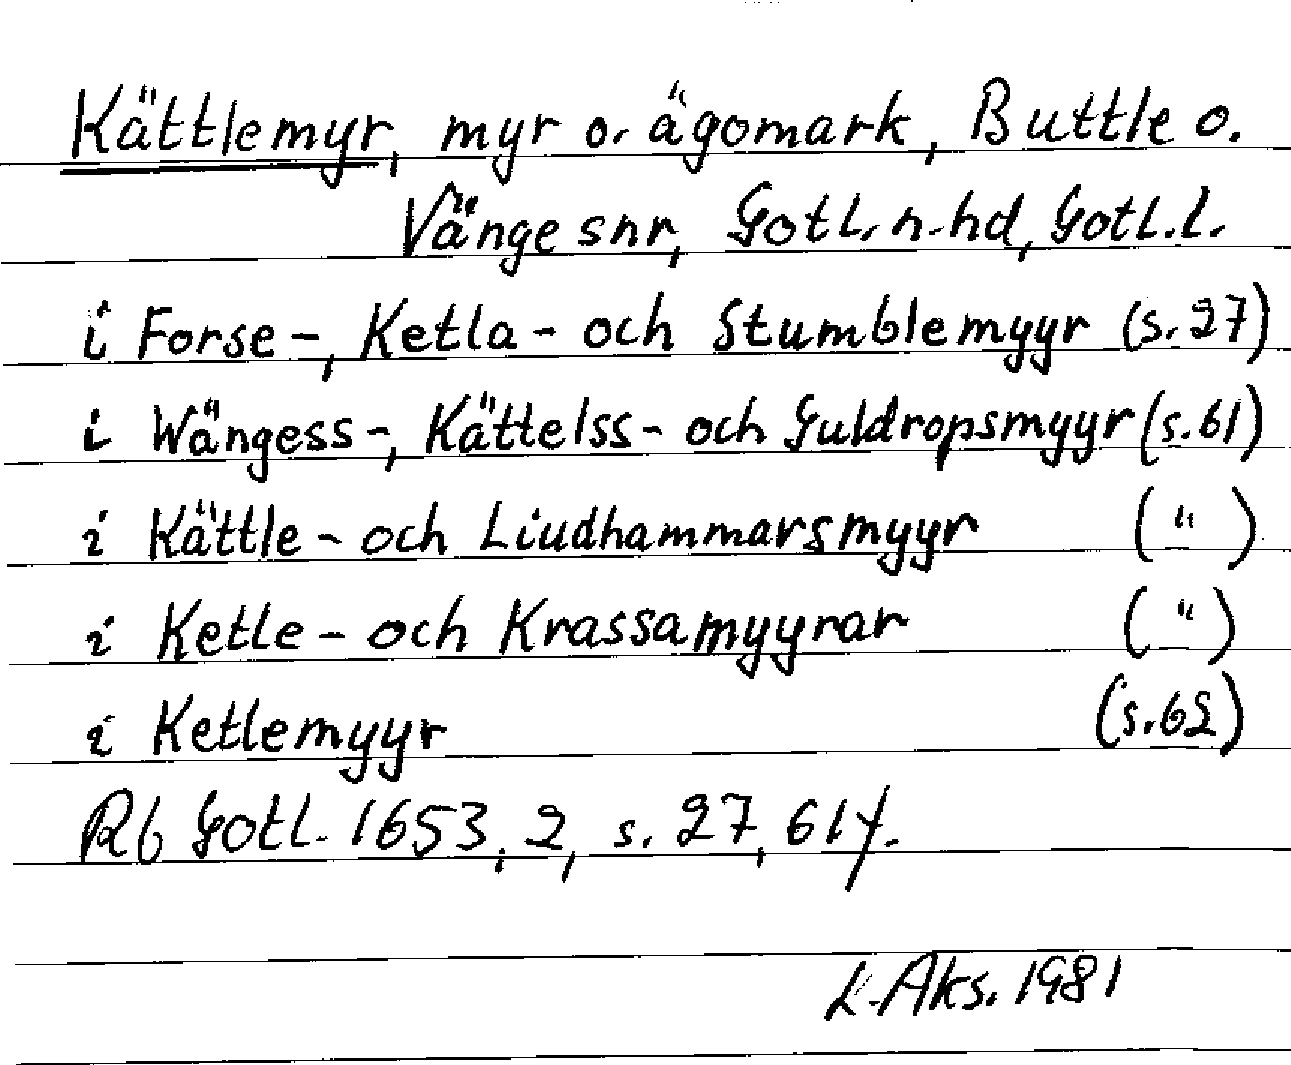 Kättlemyr, myr o. ägomark, Buttle o.
Vänge snr, Gotl. n. hd, Gotl. l.
i Forse-, Ketla- och Stumblemyyr (s. 27)
i Wängess-, Kättelss- och Guldropsmyyr (s. 61)
i Kättle- och Liudhammarsmyyr (")
i Ketle- och Krassamyyrar (")
i Ketlemyyr (s. 62)
Rb Gotl. 1653; 2, s. 27, 61f.
L. Aks. 1981